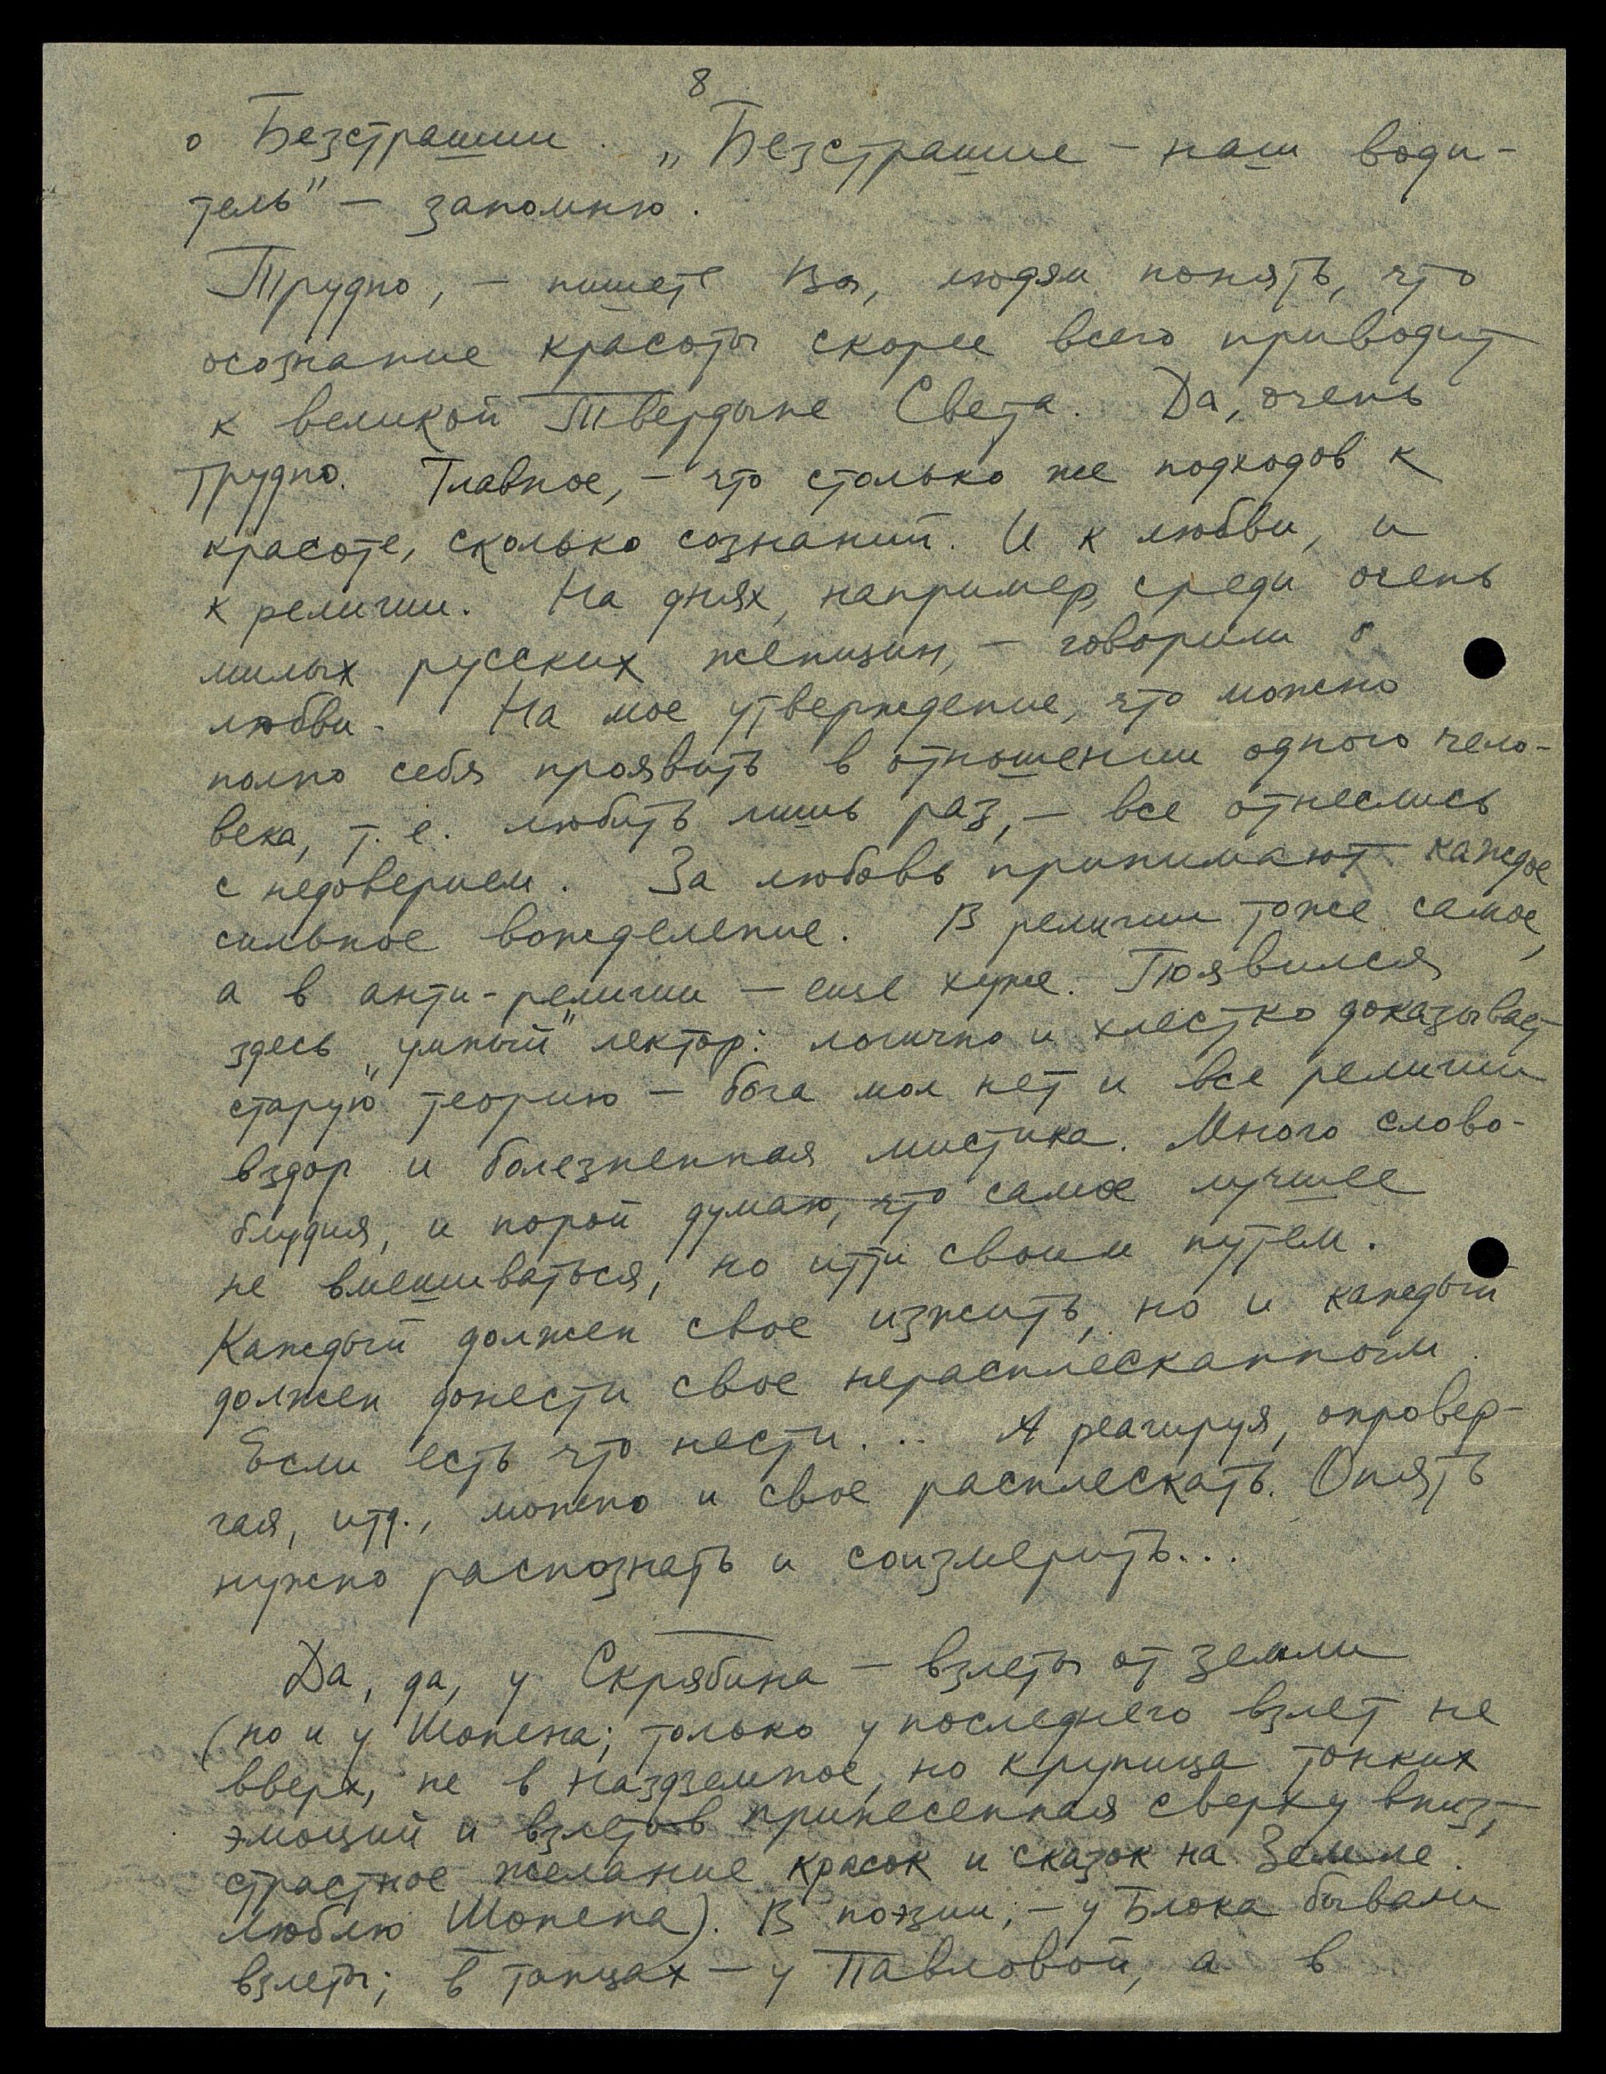 8
о Безстрашии. „Безстрашие – наш води-
тель" – запомню.
Трудно, – пишете Вы, людям понять, что
осознание красоты скорее всего приводит
к великой Твердыне Света. Да, очень
трудно. Главное, – что столько же подходов к
красоте, сколько сознаний. И к любви, и
к религии. На днях, например, среди очень
милых русских женщин, – говорили о
любви. На мое утверждение, что можно
полно себя проявить в отношении одного чело-
века, т.е. любить лишь раз, – все отнеслись
с недоверием. За любовь принимают каждое
сильное вожделение. В религии тоже самое,
а в анти-религии – еще хуже. Появился
здесь „умный" лектор: логично и хлестко доказывает
старую теорию – бога мол нет и все религии
вздор и болезненная мистика. Много слово-
блудия, и порой думаю, что самое лучшее
не вмешиваться, но итти своим путем.
Каждый должен свое изжить, но и каждый
должен донести свое нерасплесканным.
Если есть что нести... А реагируя, опровер-
гая, итд., можно и свое расплескать. Опять
нужно распознать и соизмерить...
Да, да, у Скрябина – взлеты от земли
(но и у Шопена; только у последнего взлет не
вверх, не в надземное, но крупица тонких
эмоций и взлетов принесенная сверху вниз,
страстное желание красок и сказок на Земле.
Люблю Шопена). В поэзии, – у Блока бывали
взлеты; в танцах – у Павловой, а в